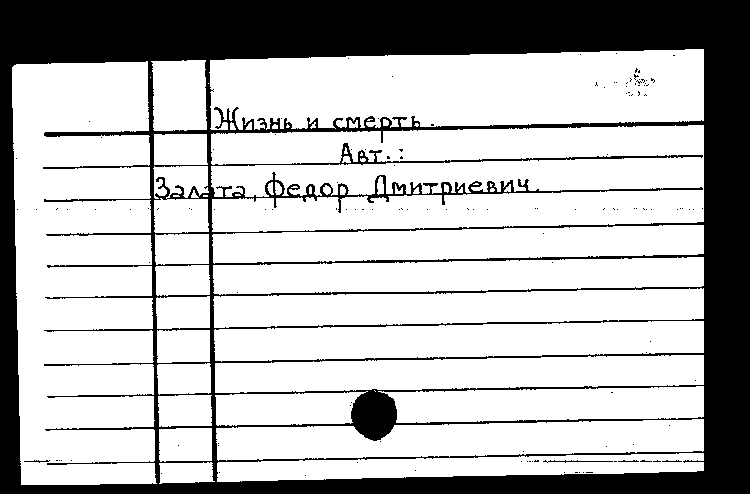 Жизнь и смерть.
Авт.:
Залата, Федор Дмитриевич.